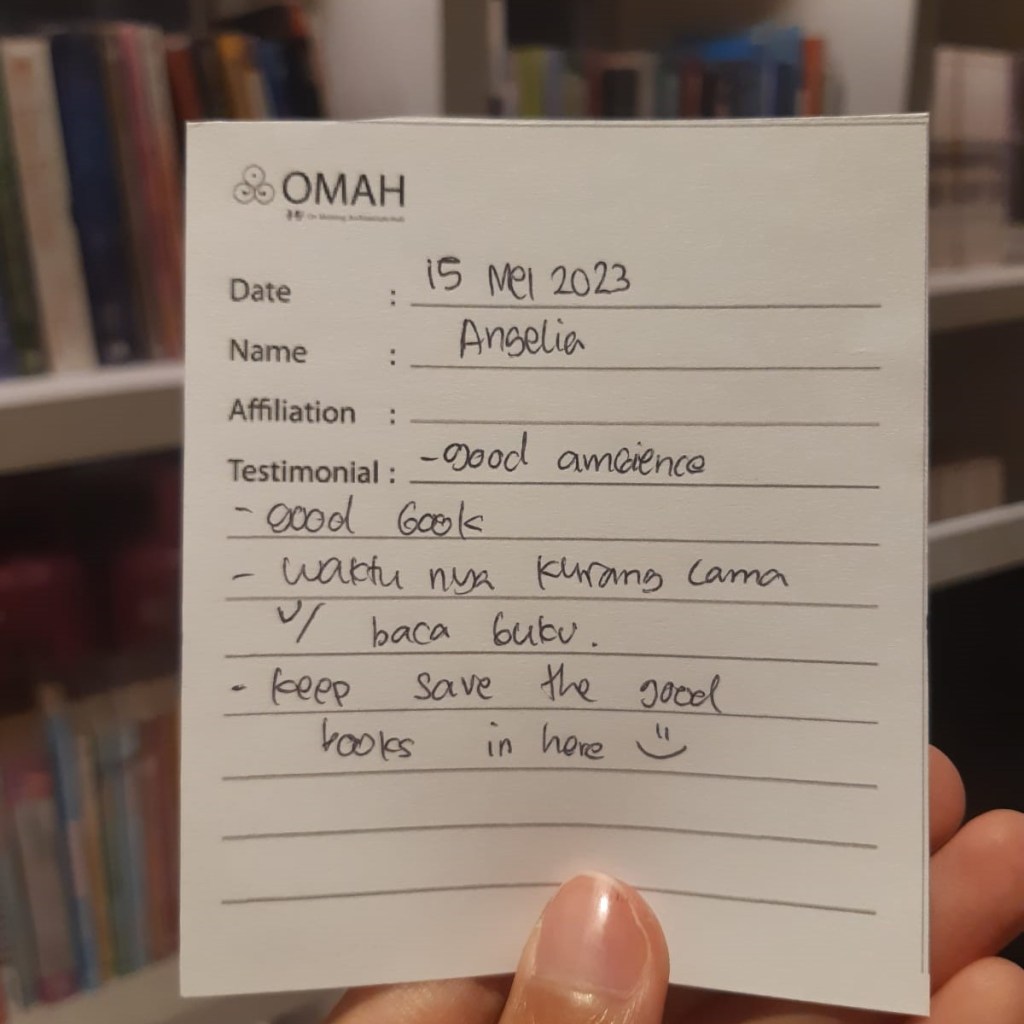 OMAH
Date : 15 Mei 2023
Name : Angelia
Affiliation :
Testimonial : - good ambience
- good book
- waktu nya kurang lama
u/ baca buku.
- keep save the good
books in here